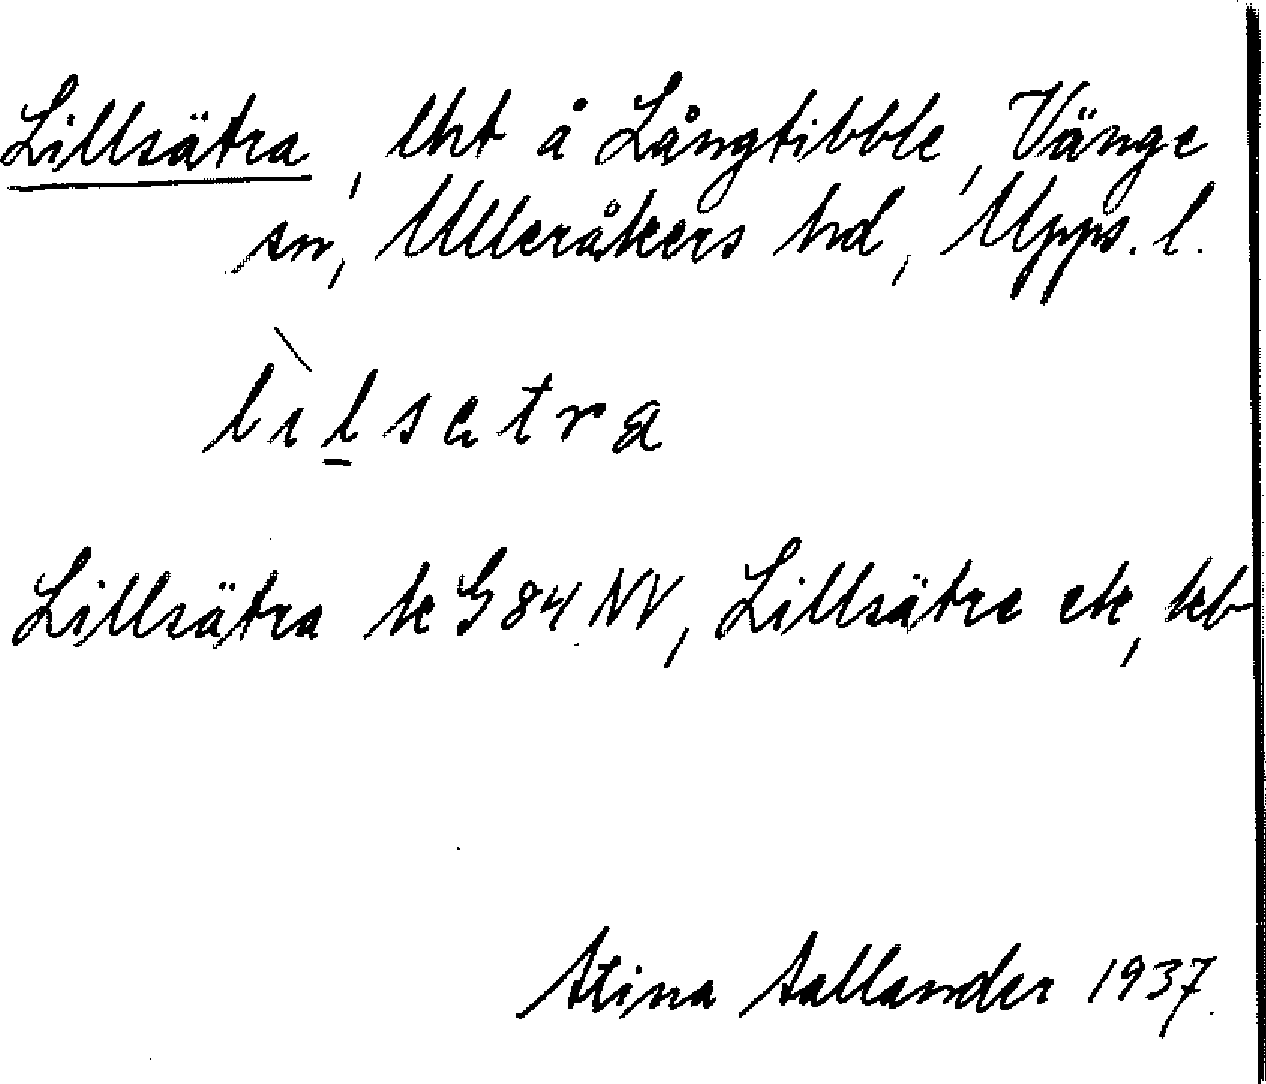 Lillsätra, lht å Långtibble, Vänge
sn, Ulleråkers hd, Upps. l.
lɩ̀lsætra
Lillsätra k G 84 NV, Lillsätre ek, kb
Stina Sallander 1937.